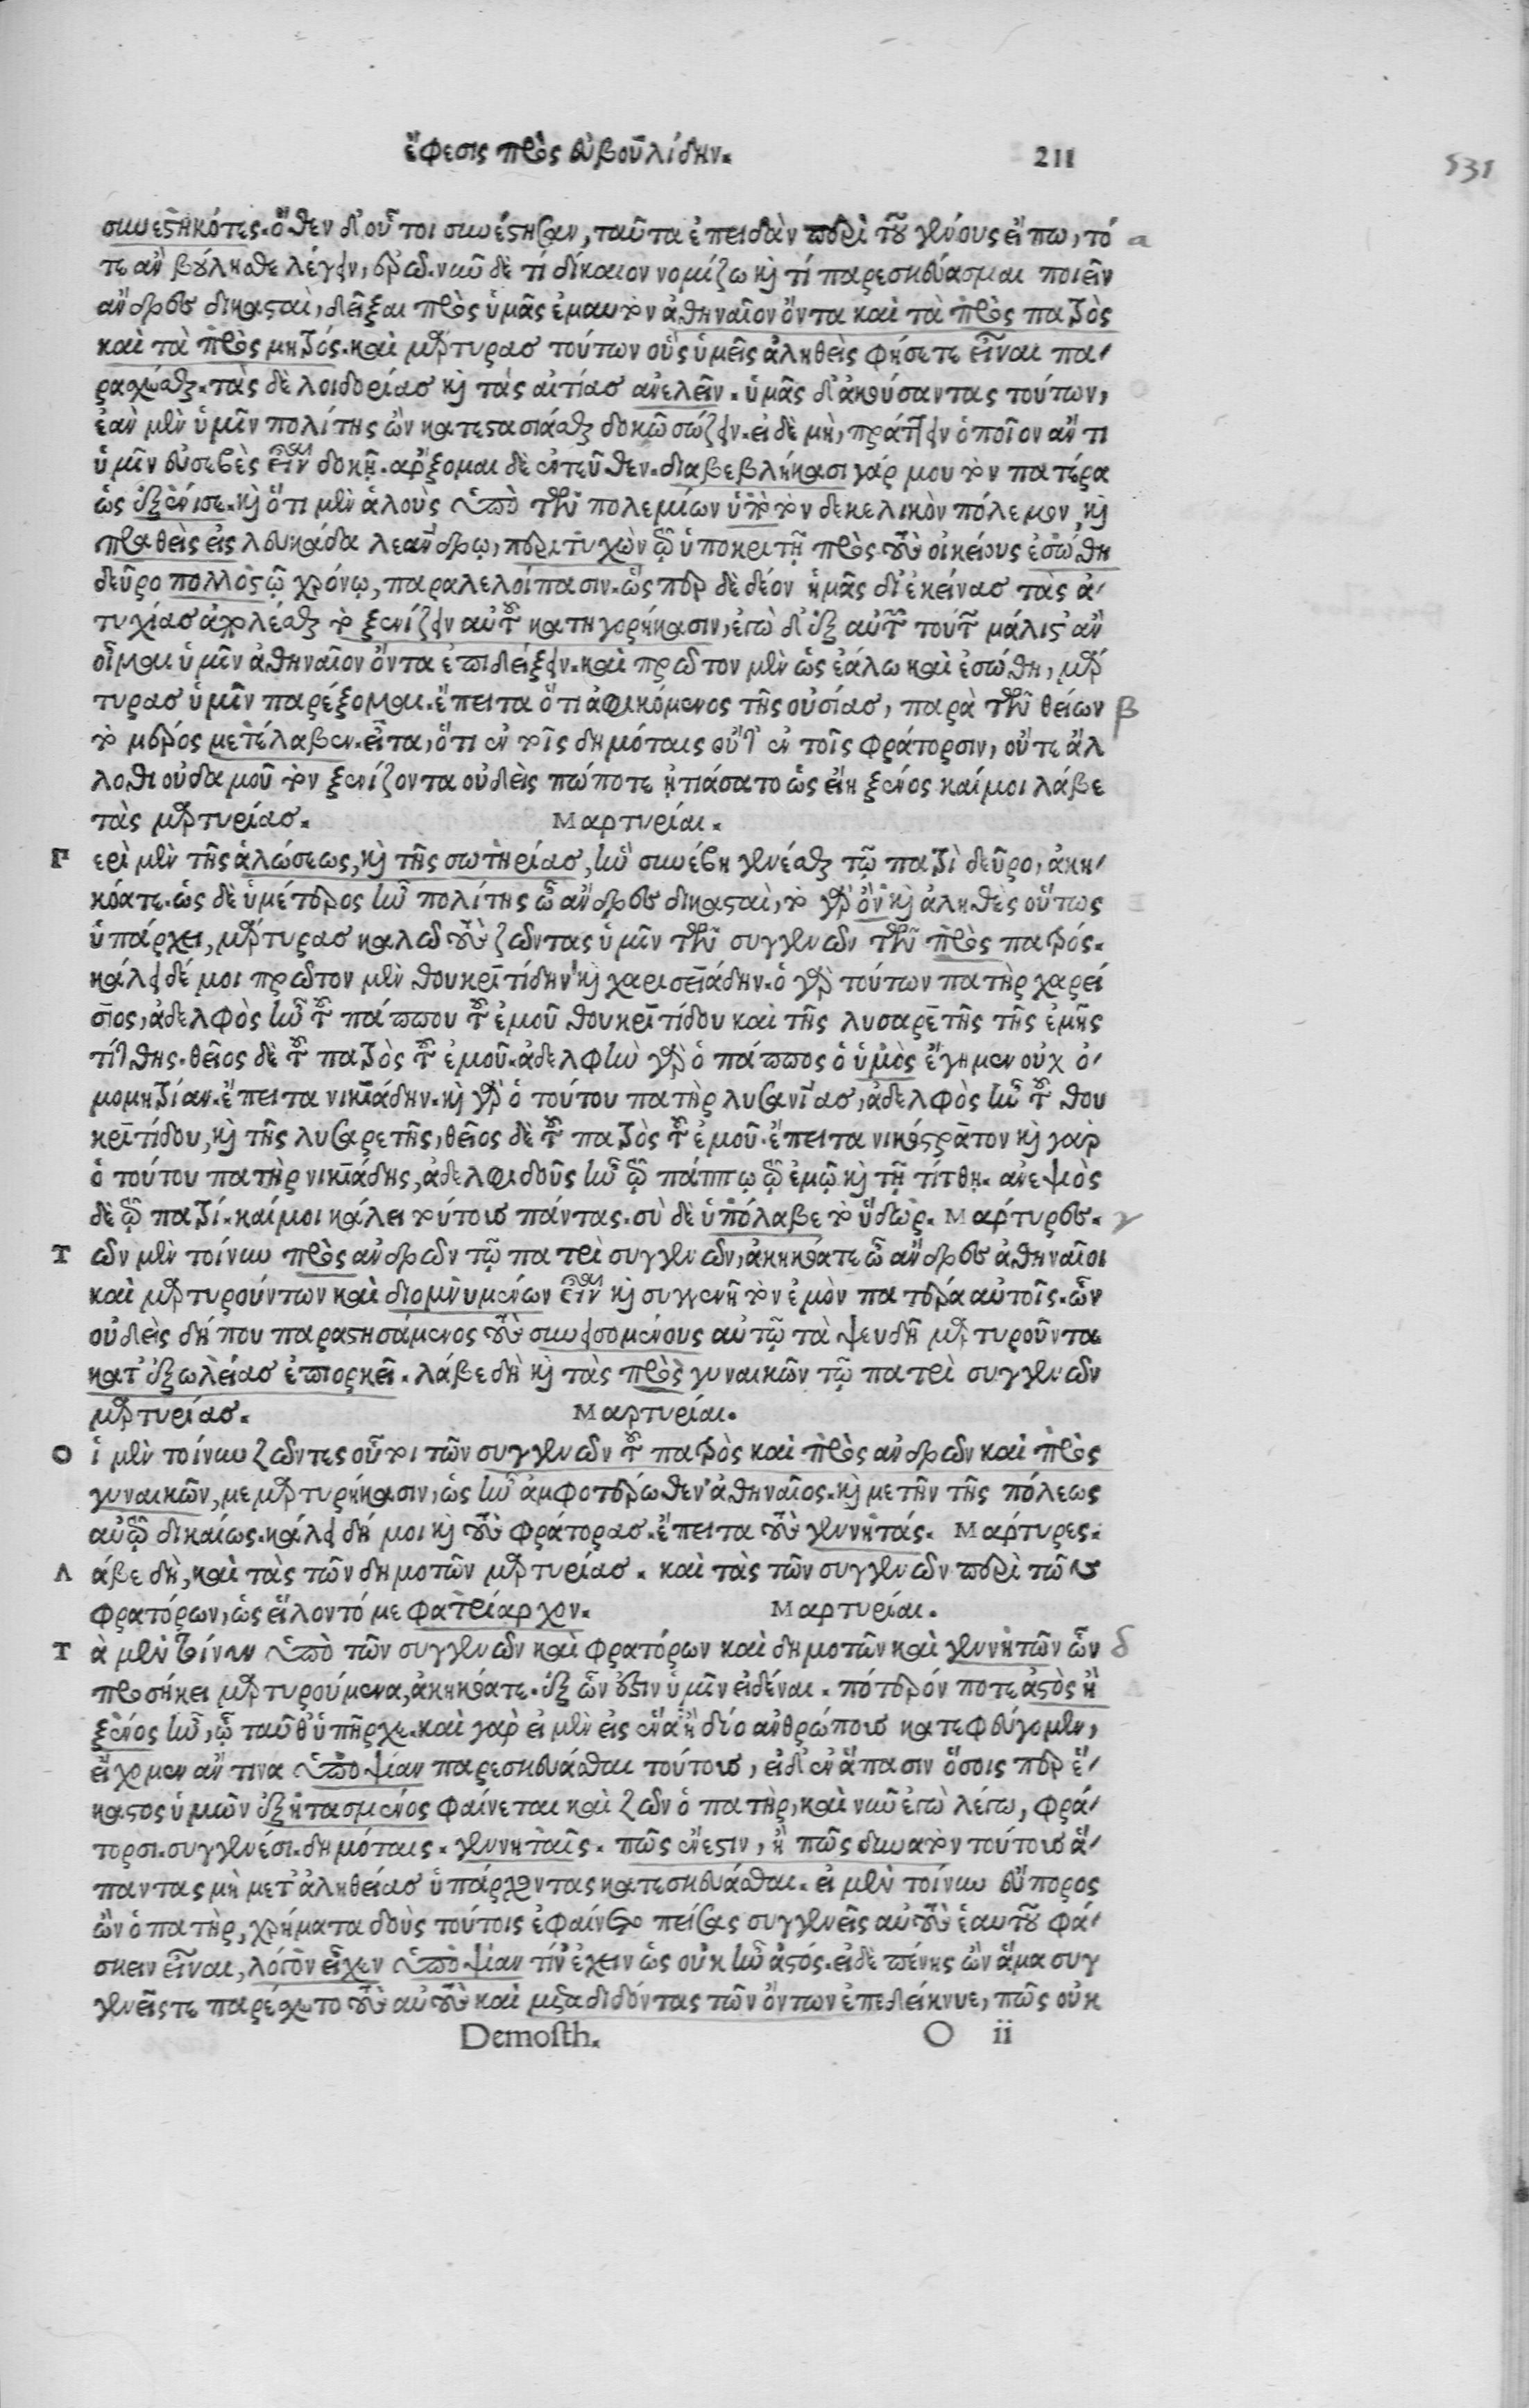 ἔφεσις πρὸς εὐβουλίδην. 211
531
συνεστηκότες. ὅθεν δ' οὗτοι συνέστησαν, ταῦτα ἐπειδὰν περὶ τοῦ γένους εἴπω, τό a
τε ἂν βούλησθε λέγειν, ἐρῶ. νῦν δὲ τί δίκαιον νομίζω καὶ τί παρεσκεύασμαι ποιεῖν
ἄνδρες δικασταὶ, δεῖξαι πρὸς ὑμᾶς ἐμαυτὸν ἀθηναῖον ὄντα καὶ τὰ πρὸς πατρὸς
καὶ τὰ πρὸς μητρός. καὶ μάρτυρας τούτων οὓς ὑμεῖς ἀληθεῖς φήσετε εἶναι πα-
ρασχέσθαι. τὰς δὲ λοιδορίας καὶ τὰς αἰτίας ἀνελεῖν. ὑμᾶς δ' ἀκούσαντας τούτων,
ἐὰν μὲν ὑμῖν πολίτης ὢν κατεστασιάσθαι δοκῶ σώζειν. εἰ δὲ μὴ, πράττειν ὁποῖον ἄν τι
ὑμῖν εὐσεβὲς εἶναι δοκῇ. ἄρξομαι δὲ ἐντεῦθεν. διαβεβλήκασι γάρ μου τὸν πατέρα
ὡς ἐξένισε. καὶ ὅτι μὲν ἁλοὺς ὑπὸ τῶν πολεμίων ὑπὸ τὸν δεκελικὸν πόλεμον, καὶ
πραθεὶς εἰς λευκάδα λεάνδρῳ, περιτυχὼν τῷ ὑποκριτῇ πρὸς τοὺς οἰκείους ἐσώθη
δεῦρο πολλοστῷ χρόνῳ, παραλελοίπασιν. ὥσπερ δὲ δέον ἡμᾶς δι' ἐκείνας τὰς ἀ-
τυχίας ἀπολέσθαι τὸ ξενίζειν αὐτοῦ κατηγορήκασιν, ἐγὼ δ' ἐξ αὐτοῦ τούτου μάλιστ' ἂν
οἶμαι ὑμῖν ἀθηναῖον ὄντα ἐπιδείξειν. καὶ πρῶτον μὲν ὡς ἑάλω καὶ ἐσώθη, μάρ
τυρας ὑμῖν παρέξομαι. ἔπειτα ὅτι ἀφικόμενος τῆς οὐσίας, παρὰ τῶν θείων β
τὸ μέρος μετέλαβεν. εἶτα, ὅτι ἐν τοῖς δημόταις οὔτ' ἐν τοῖς φράτορσιν, οὔτε ἄλ
λοθι οὐδαμοῦ τὸν ξενίζοντα οὐδεὶς πώποτε ᾐτιάσατο ὡς εἴη ξένος καί μοι λάβε
τὰς μαρτυρίας. Μαρτυρίαι.
Π ερὶ μὲν τῆς ἁλώσεως, καὶ τῆς σωτηρίας, ἣν συνέβη γενέσθαι τῷ πατρὶ δεῦρο, ἀκη-
κόατε. ὡς δὲ ὑμέτερος ἦν πολίτης ὦ ἄνδρες δικασταὶ, τὸ γὰρ ὂν καὶ ἀληθὲς οὕτως
ὑπάρχει, μάρτυρας καλῶ τοὺς ζῶντας ὑμῖν τῶν συγγενῶν τῶν πρὸς πατρός.
κάλει δέ μοι πρῶτον μὲν θουκριτίδην καὶ χαρισιάδην. ὁ γὰρ τούτων πατὴρ χαρεί
σιος, ἀδελφὸς ἦν τοῦ πάππου τοῦ ἐμοῦ θουκριτίδου καὶ τῆς λυσαρέτης τῆς ἐμῆς
τίτθης. θεῖος δὲ τοῦ πατρὸς τοῦ ἐμοῦ. ἀδελφὴν γὰρ ὁ πάππος ὁ ὑμὸς ἔγημεν οὐχ ὁ-
μομητρίαν. ἔπειτα νικιάδην. καὶ γὰρ ὁ τούτου πατὴρ λυσανίας, ἀδελφὸς ἦν τοῦ θου
κριτίδου, καὶ τῆς λυσαρετῆς, θεῖος δὲ τοῦ πατρὸς τοῦ ἐμοῦ. ἔπειτα νικόστρατον καὶ γὰρ
ὁ τούτου πατὴρ νικιάδης, ἀδελφιδοῦς ἦν τῷ πάππῳ τῷ ἐμῷ καὶ τῇ τίτθῃ. ἀνεψιὸς
δὲ τῷ πατρί. καί μοι κάλει τούτους πάντας. σὺ δὲ ὑπόλαβε τὸ ὕδωρ. Μάρτυρες. γ
Τ ῶν μὲν τοίνυν πρὸς ἀνδρῶν τῷ πατρὶ συγγενῶν, ἀκηκόατε ὦ ἄνδρες ἀθηναῖοι
καὶ μαρτυρούντων καὶ διομνυμένων εἶναι καὶ συγγενῆ τὸν ἐμὸν πατέρα αὐτοῖς. ὧν
οὐδεὶς δήπου παραστησάμενος τοὺς συνεισομένους αὐτῷ τὰ ψευδῆ μαρτυροῦντα
κατ' ἐξωλείας ἐπιορκεῖ. λάβε δὴ καὶ τὰς πρὸς γυναικῶν τῷ πατρὶ συγγενῶν
μαρτυρίας. Μαρτυρίαι.
Ο ἱ μὲν τοίνυν ζῶντες οὗτοι τῶν συγγενῶν τοῦ πατρὸς καὶ πρὸς ἀνδρῶν καὶ πρὸς
γυναικῶν, μεμαρτυρήκασιν, ὡς ἦν ἀμφοτέρωθεν ἀθηναῖος. καὶ μετῆν τῆς πόλεως
αὐτῷ δικαίως. κάλει δή μοι καὶ τοὺς φράτορας. ἔπειτα τοὺς γεννήτάς. Μάρτυρες.
Λ άβε δὴ, καὶ τὰς τῶν δημοτῶν μαρτυρίας. καὶ τὰς τῶν συγγενῶν περὶ τῶν
φρατόρων, ὡς εἵλοντό με φατρίαρχον. Μαρτυρίαι.
Τ ὰ μὲν τοίνυν ὑπὸ τῶν συγγενῶν καὶ φρατόρων καὶ δημοτῶν καὶ γεννητῶν ὧν δ
προσήκει μαρτυρούμενα, ἀκηκόατε. ἐξ ὧν ἔστιν ὑμῖν εἰδέναι. πότερόν ποτε ἀστὸς ἢ
ξένος ἦν, ᾧ ταῦθ' ὑπῆρχε. καὶ γὰρ εἰ μὲν εἰς ἕνα ἢ δύο ἀνθρώπους κατεφεύγομεν,
εἴχομεν ἄν τινα ὑποψίαν παρεσκευάσθαι τούτους, εἰ δ' ἐν ἅπασιν ὅσοις περ ἕ-
καστος ὑμῶν ἐξητασμένος φαίνεται καὶ ζῶν ὁ πατὴρ, καὶ νῦν ἐγὼ λέγω, φρά-
τορσι. συγγενέσι. δημόταις. γεννηταῖς. πῶς ἔνεστιν, ἢ πῶς δυνατὸν τούτους ἅ-
παντας μὴ μετ' ἀληθείας ὑπάρχοντας κατεσκευάσθαι. εἰ μὲν τοίνυν εὔπορος
ὢν ὁ πατὴρ, χρήματα δοὺς τούτοις ἐφαίνετο πείσας συγγενεῖς αὐτοὺς ἑαυτοῦ φά-
σκειν εἶναι, λόγον εἶχεν ὑποψίαν τίν' ἔχειν ὡς οὐκ ἦν ἀστός. εἰ δὲ πένης ὢν ἅμα συγ
γενεῖς τε παρέσχετο τοὺς αὐτοὺς καὶ μεταδιδόντας τῶν ὄντων ἐπεδείκνυε, πῶς οὐκ
Demosth. O ii